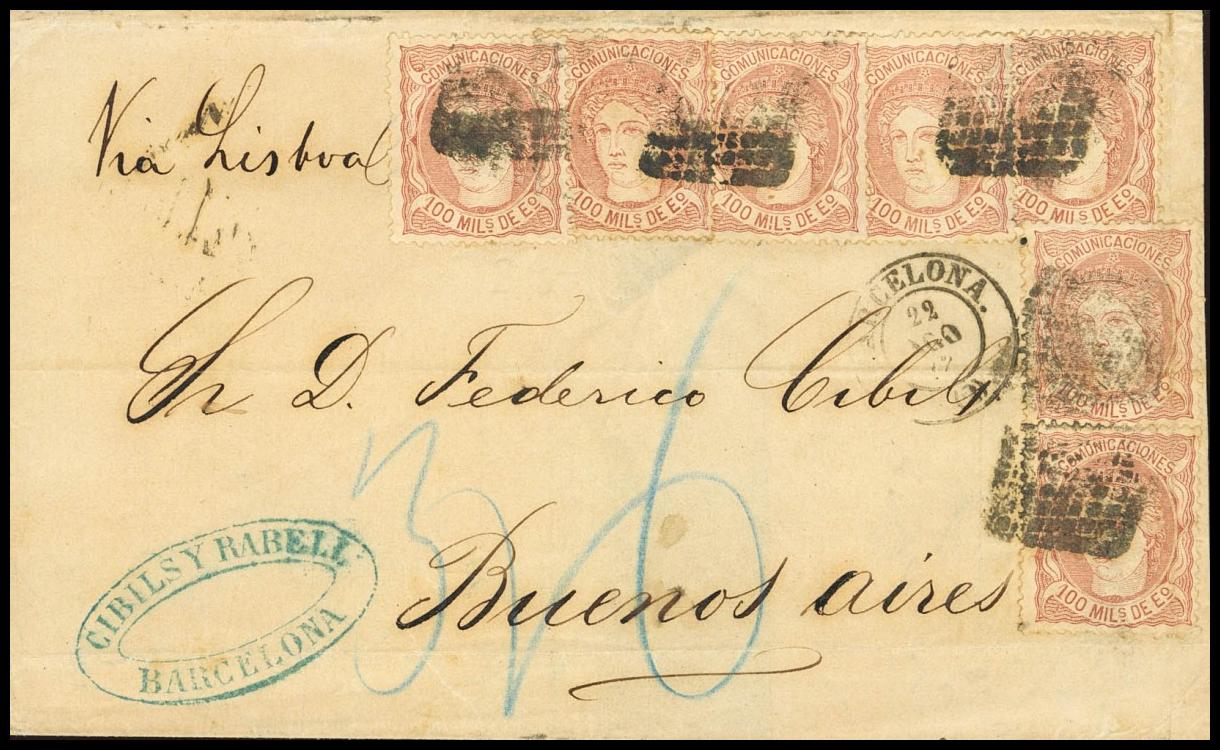 COMUNICACIONES
100 MILS DE Eo
COMUNICACIONES
100 MILS DE Eo
COMUNICACIONES
100 MILS DE Eo
COMUNICACIONES
100 MILS DE Eo
COMUNICACIONES
100 MILS DE Eo
Via Lisboa
COMUNICACIONES
100 MILS DE Eo
BARCELONA.
22
AGO
Sr D. Federico Cibils
COMUNICACIONES
100 MILS DE Eo
Buenos aires
CIBILS Y RABELL
BARCELONA